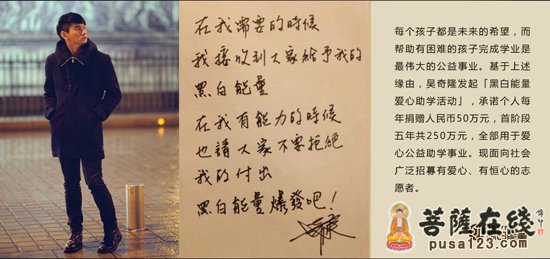 在我需要的時候
我接收到大家給予我的
黑白能量
在我有能力的時候
也請大家不要拒絕
我的付出
黑白能量爆發吧！
每个孩子都是未来的希望，而
帮助有困难的孩子完成学业是
最伟大的公益事业。基于上述
缘由，吴奇隆发起「黑白能量
爱心助学活动」，承诺个人每
年捐赠人民币50万元，首阶段
五年共250万元，全部用于爱
心公益助学事业。现面向社会
广泛招募有爱心、有恒心的志
愿者。
菩薩在綫
pusa123.com